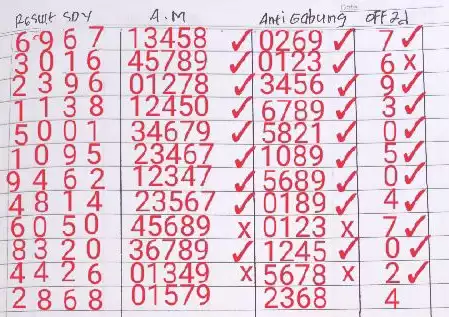 Result SDY A.M Anti Gabung OFF 2d
6967 13458 ✓ 0269 ✓ 7 ✓
3016 45789 ✓ 0123 ✓ 6 x
2396 01278 ✓ 3456 ✓ 9 ✓
1138 12450 ✓ 6789 ✓ 3 ✓
5001 34679 ✓ 5821 ✓ 0 ✓
1095 23467 ✓ 1089 ✓ 5 ✓
9462 12347 ✓ 5689 ✓ 0 ✓
4814 23567 ✓ 0189 ✓ 4 ✓
6050 45689 x 0123 x 7 ✓
8320 36789 ✓ 1245 ✓ 0 ✓
4426 01349 x 5678 x 2 ✓
2868 01579 2368 4